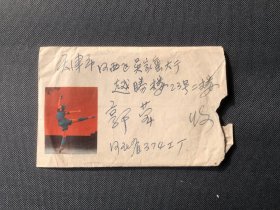 天津市河西区吴家窑大
楼23号二楼
郭 收
河北省374工厂